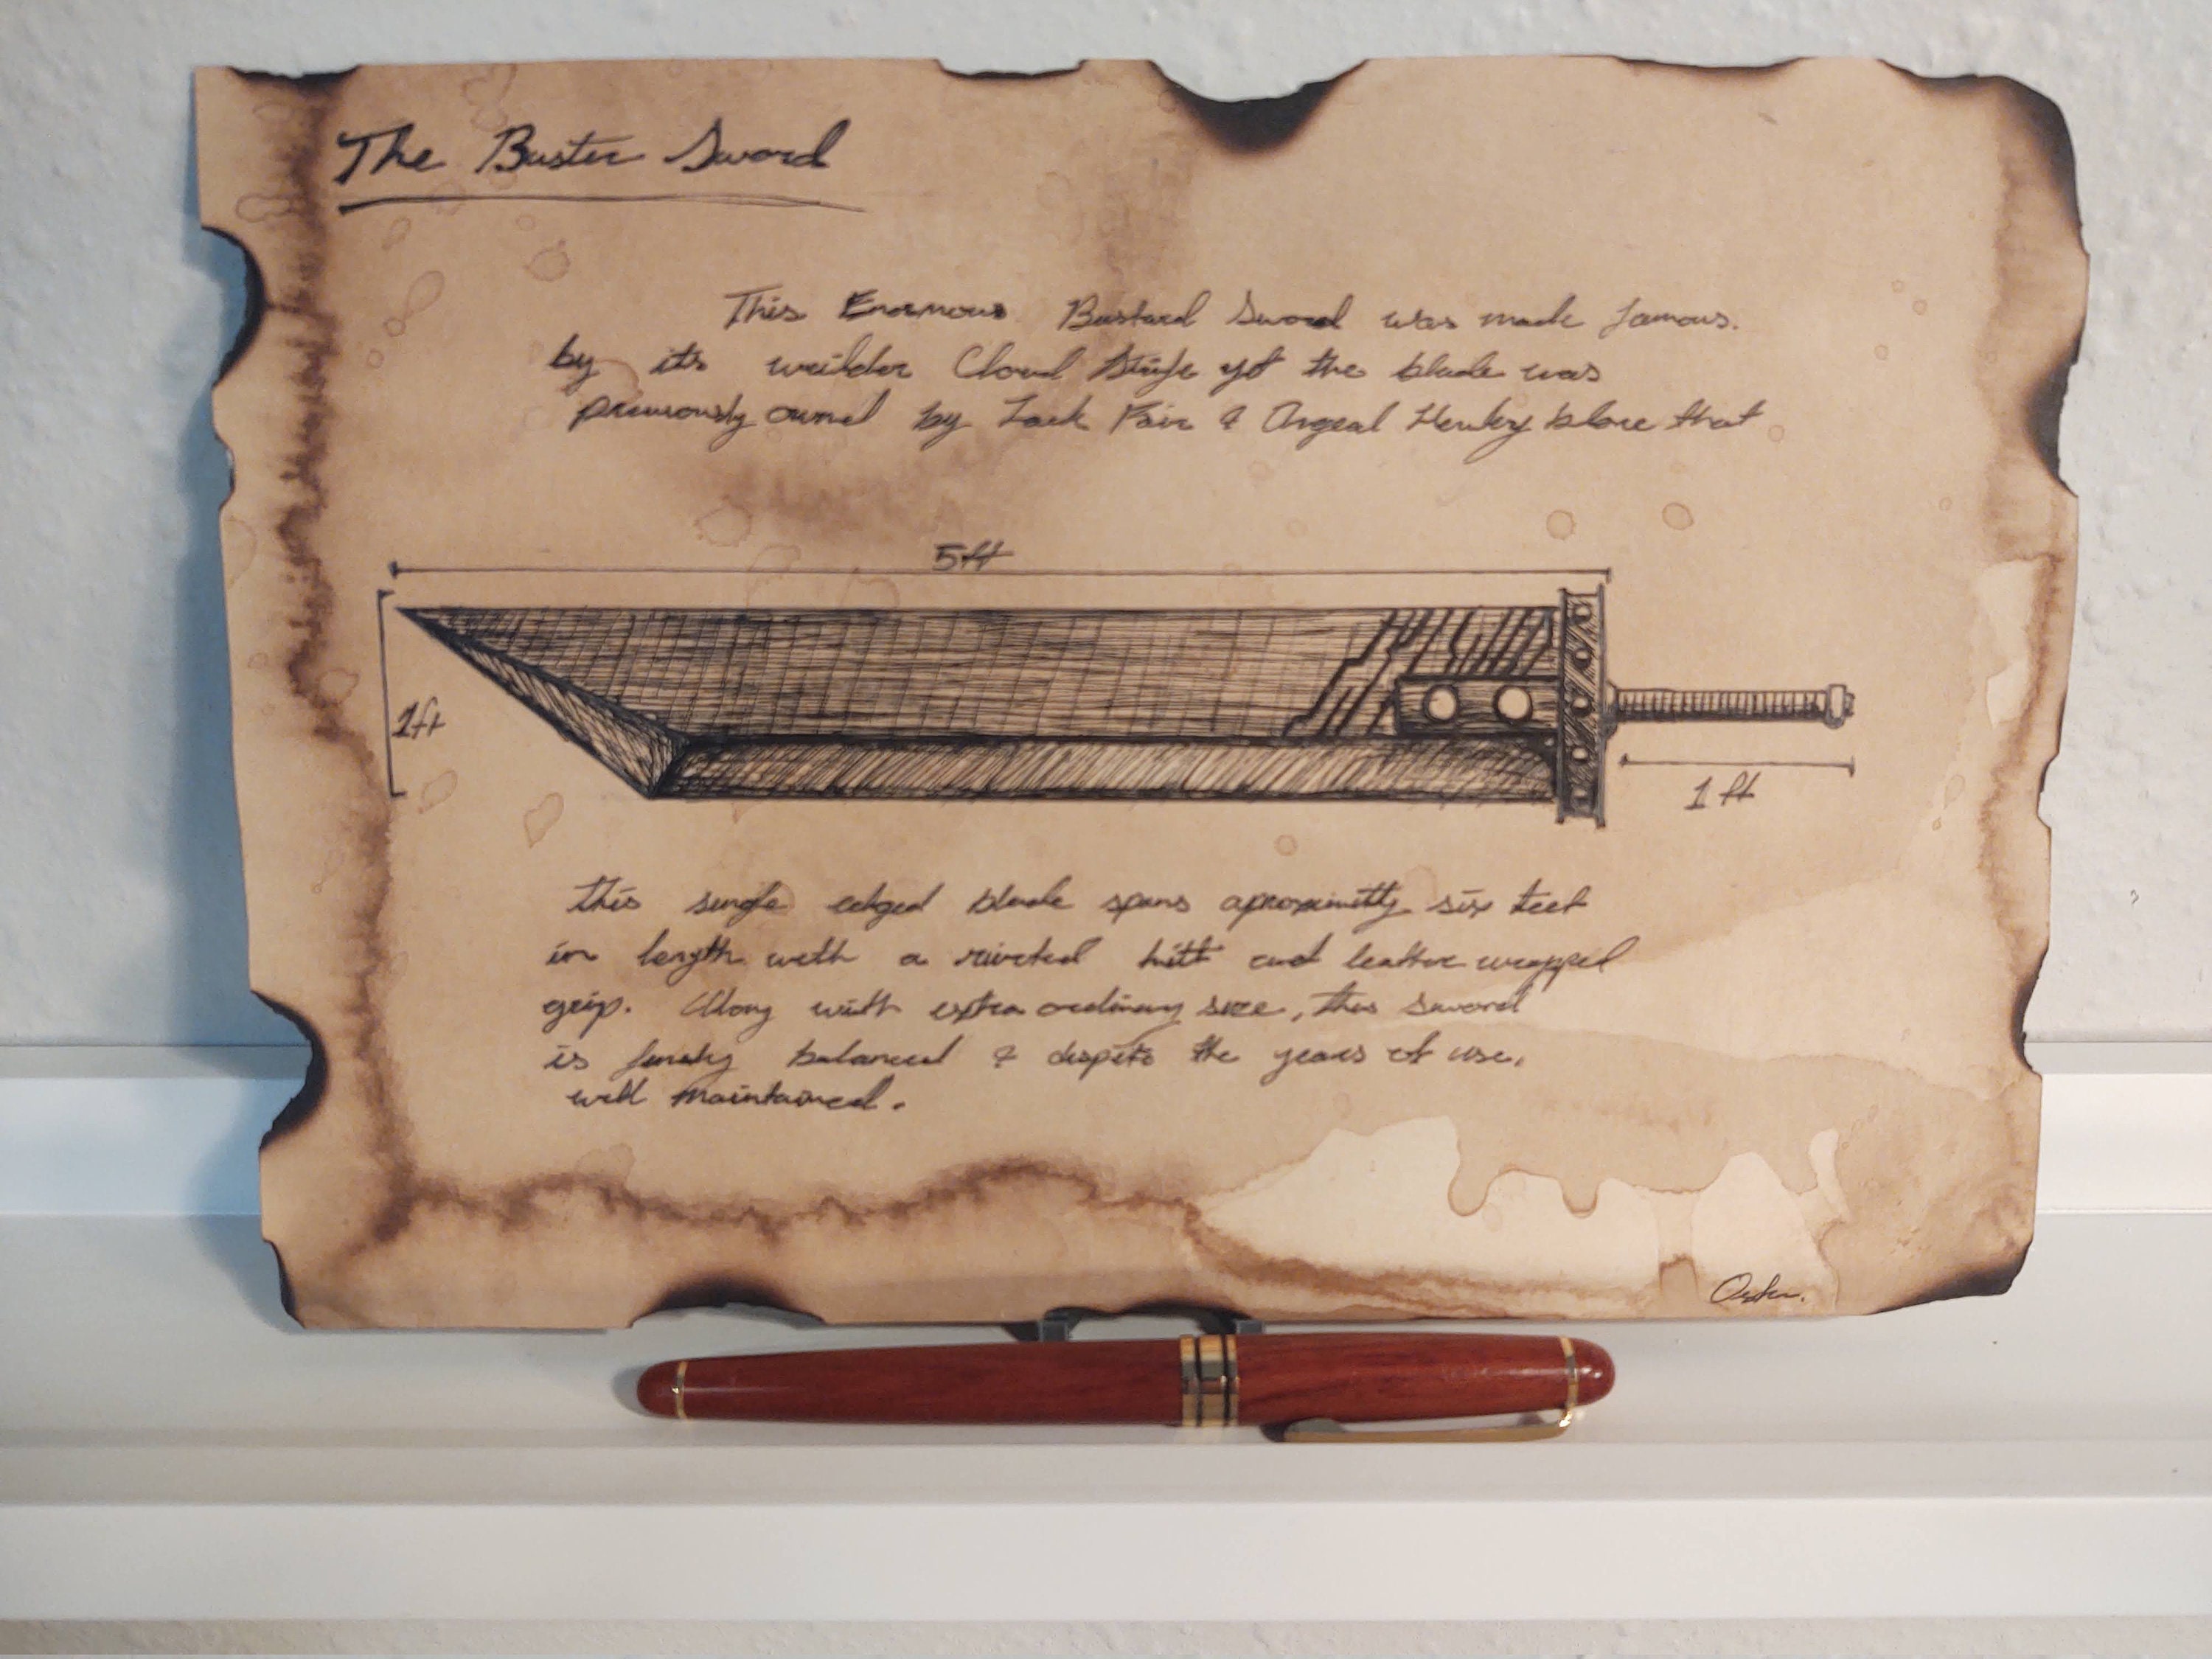 The Buster Sword
This Enormous Bastard Sword was made famous.
by it's weilder Cloud Strife yet the blade was
previously owned by Zack Fair & Angeal Hewley before that
5ft
1ft
1ft
this single edged blade spans aproximitly six feet
in length with a riveted hilt and leather wrapped
grip. Along with extra ordinary size, this sword
is finely balanced & dispite the years of use,
well maintained.